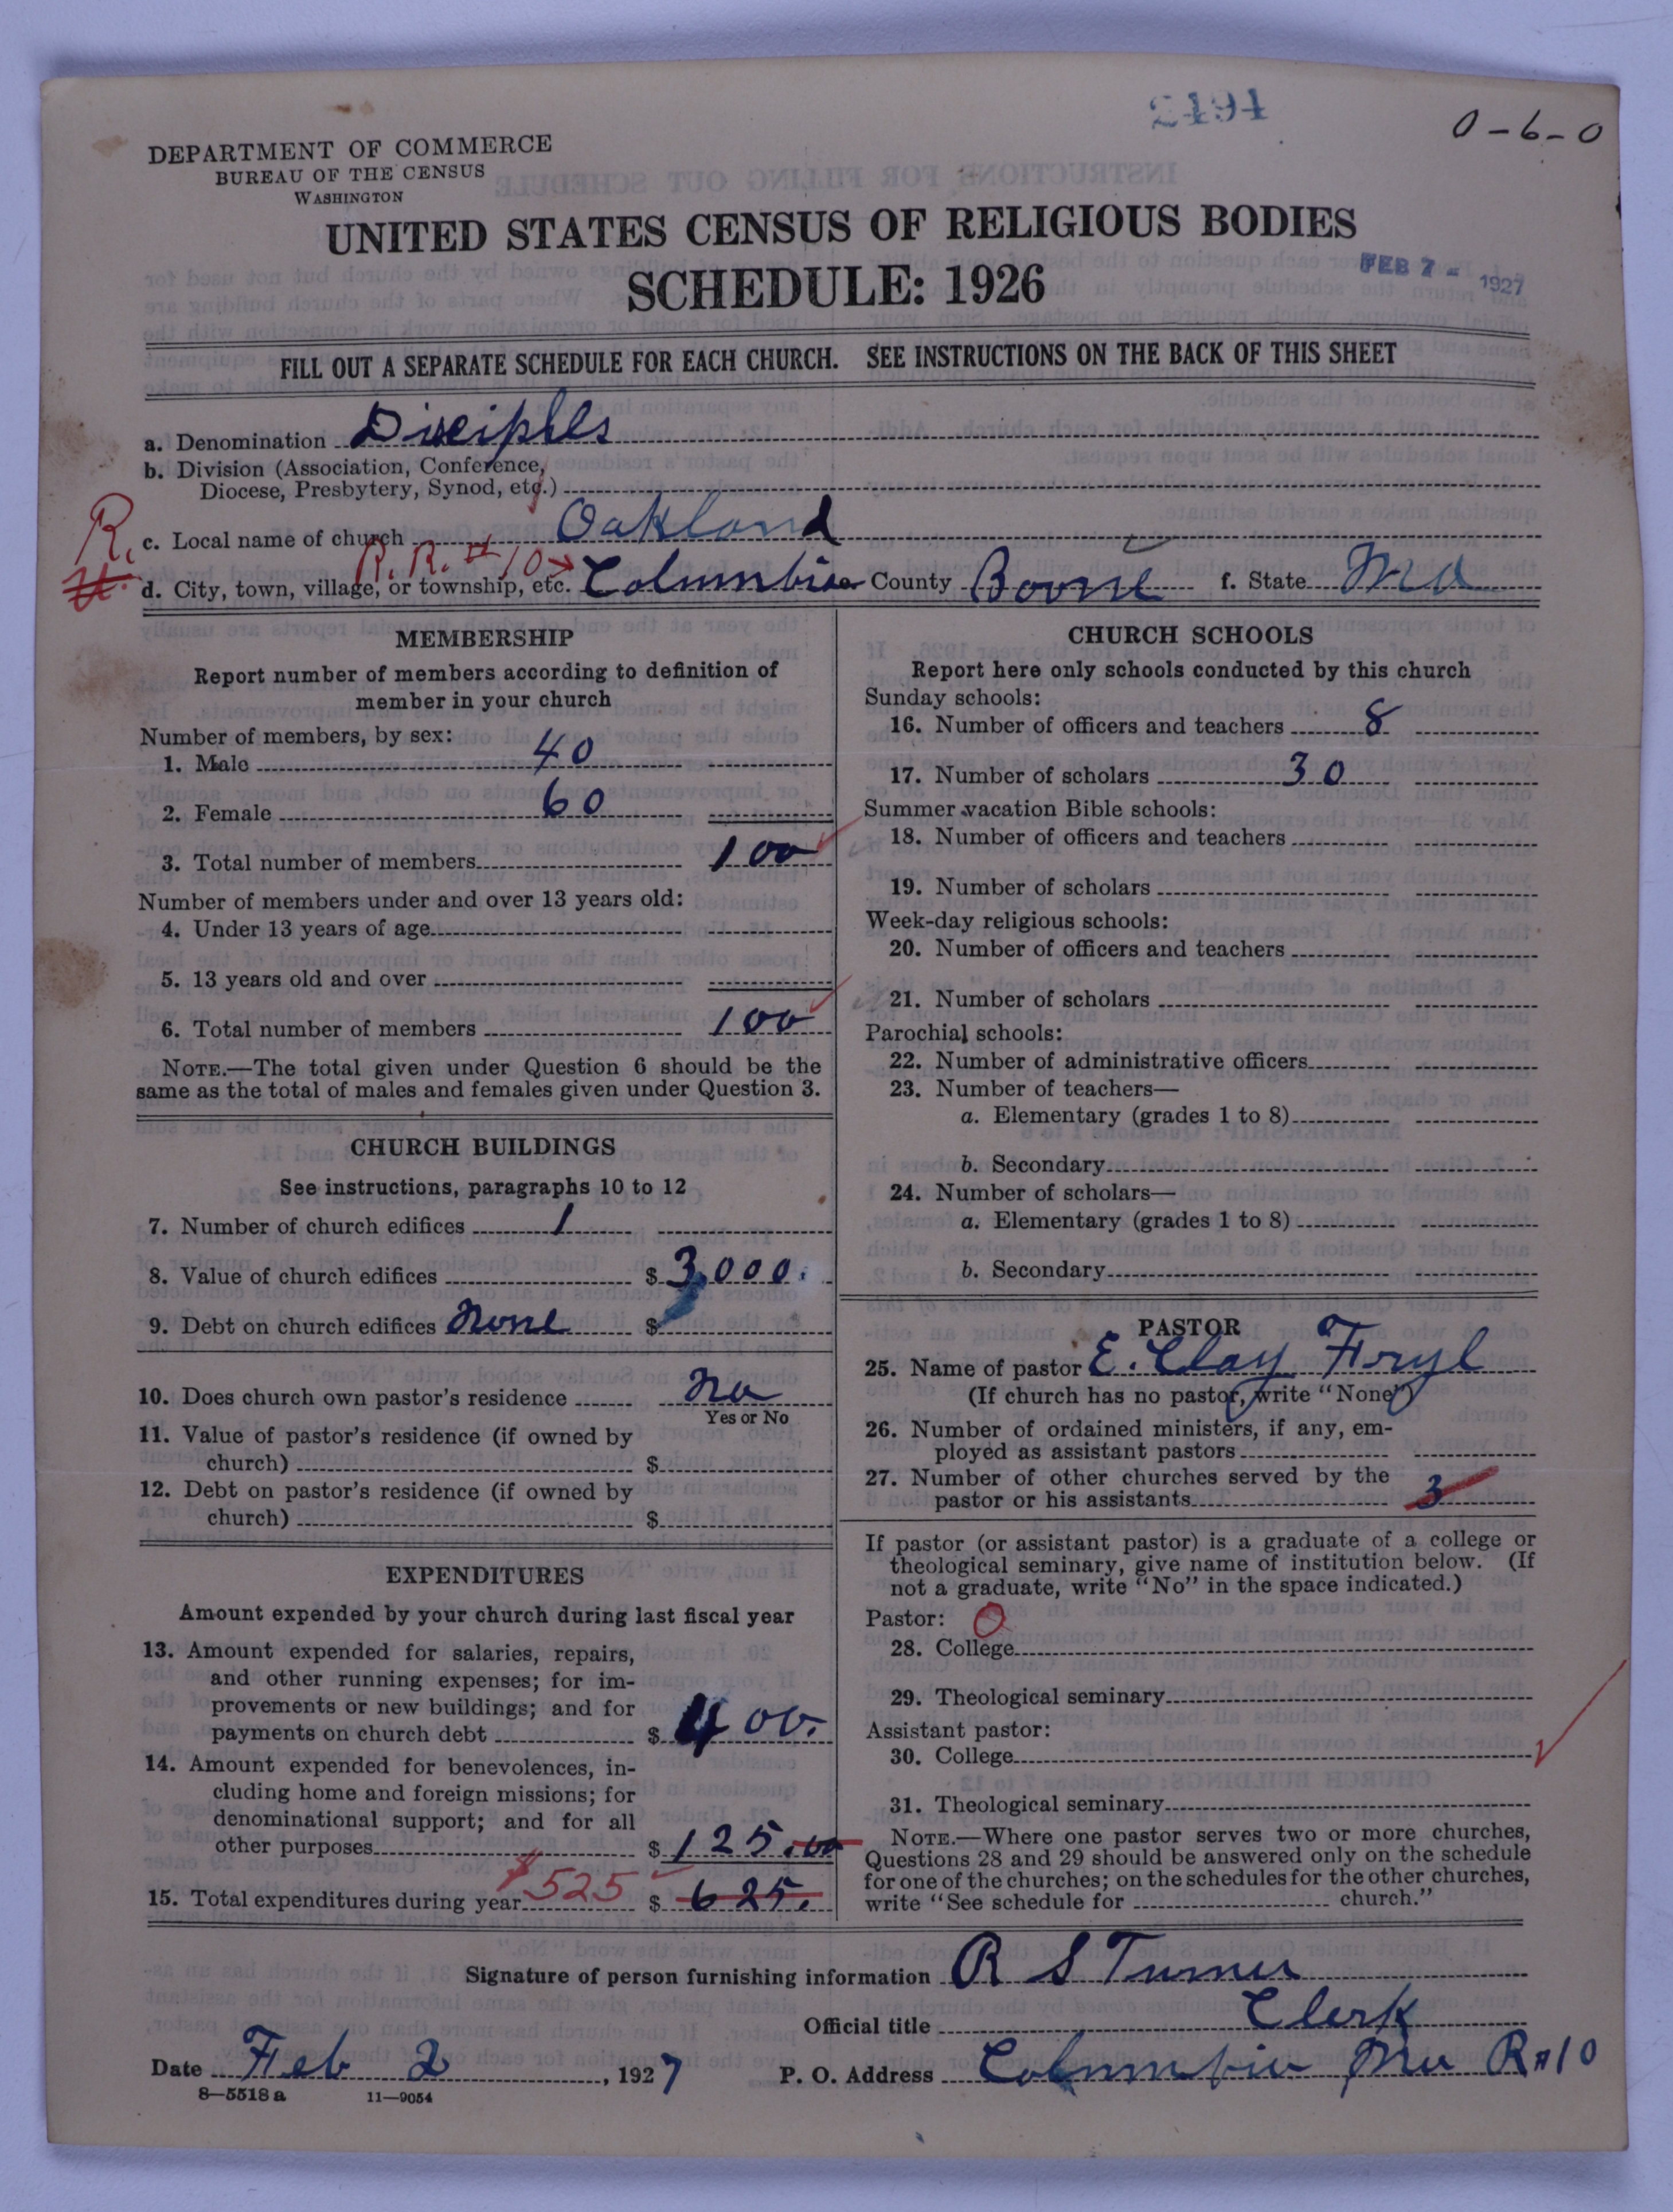 2494
0-6-0
DEPARTMENT OF COMMERCE
BUREAU OF THE CENSUS
WASHINGTON
UNITED STATES CENSUS OF RELIGIOUS BODIES
SCHEDULE: 1926
FEB 7 - 1927
FILL OUT A SEPARATE SCHEDULE FOR EACH CHURCH. SEE INSTRUCTIONS ON THE BACK OF THIS SHEET
a. Denomination Disciples
b. Division (Association, Conference,
Diocese, Presbytery, Synod, etc.)
R. c. Local name of church Oakland
R. R. # 10 →
d. City, town, village, or township, etc. Columbia County Boone f. State Mo
MEMBERSHIP
Report number of members according to definition of
member in your church
Number of members, by sex:
1. Male 40
2. Female 60
3. Total number of members 100
Number of members under and over 13 years old:
4. Under 13 years of age
5. 13 years old and over
6. Total number of members 100
NOTE.—The total given under Question 6 should be the
same as the total of males and females given under Question 3.
CHURCH BUILDINGS
See instructions, paragraphs 10 to 12
7. Number of church edifices 1
8. Value of church edifices $ 3,000.
9. Debt on church edifices None $
10. Does church own pastor's residence No
Yes or No
11. Value of pastor's residence (if owned by
church) $
12. Debt on pastor's residence (if owned by
church) $
EXPENDITURES
Amount expended by your church during last fiscal year
13. Amount expended for salaries, repairs,
and other running expenses; for im-
provements or new buildings; and for
payments on church debt $ 400.
14. Amount expended for benevolences, in-
cluding home and foreign missions; for
denominational support; and for all
other purposes $ 125.00
15. Total expenditures during year $525 $ 625.
CHURCH SCHOOLS
Report here only schools conducted by this church
Sunday schools:
16. Number of officers and teachers 8
17. Number of scholars 30
Summer vacation Bible schools:
18. Number of officers and teachers
19. Number of scholars
Week-day religious schools:
20. Number of officers and teachers
21. Number of scholars
Parochial schools:
22. Number of administrative officers
23. Number of teachers—
a. Elementary (grades 1 to 8)
b. Secondary
24. Number of scholars—
a. Elementary (grades 1 to 8)
b. Secondary
PASTOR
25. Name of pastor E. Clay
(If church has no pastor, write "None")
26. Number of ordained ministers, if any, em-
ployed as assistant pastors
27. Number of other churches served by the
pastor or his assistants 3
If pastor (or assistant pastor) is a graduate of a college or
theological seminary, give name of institution below. (If
not a graduate, write "No" in the space indicated.)
Pastor: O
28. College
29. Theological seminary
Assistant pastor:
30. College
31. Theological seminary
NOTE.—Where one pastor serves two or more churches,
Questions 28 and 29 should be answered only on the schedule
for one of the churches; on the schedules for the other churches,
write "See schedule for church."
Signature of person furnishing information R S Turner
Official title Clerk
Date Feb 2, 1927 P. O. Address Columbia Mo R#10
8—5518 a 11—9054